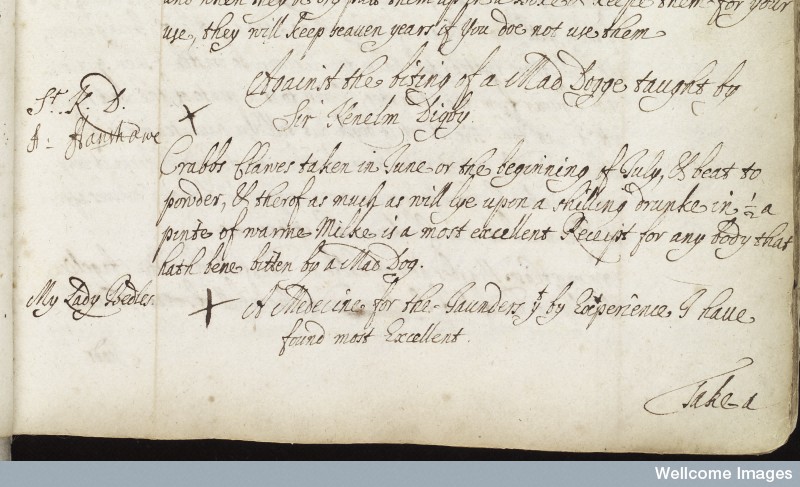 and when they be dry putt them up in a boxe & keepe them for your
use, they will keep seaven years if you doe not use them
Against the biting of a Mad Dogge taught by
Sir Kenelm Digby.
Sr. K. D.
A: Fanshawe
Crabbs Clawes taken in June or the beginning of July, & beat to
powder, & therof as much as will lye upon a shilling drunke in ½ a
pinte of warme Milke is a most excellent Receipt for any body that
hath bene bitten by a Mad Dog.
My Lady Bedles.
A Medecine for the Jaunders yt by Experience I have
found most Excellent.
Take a
Wellcome Images